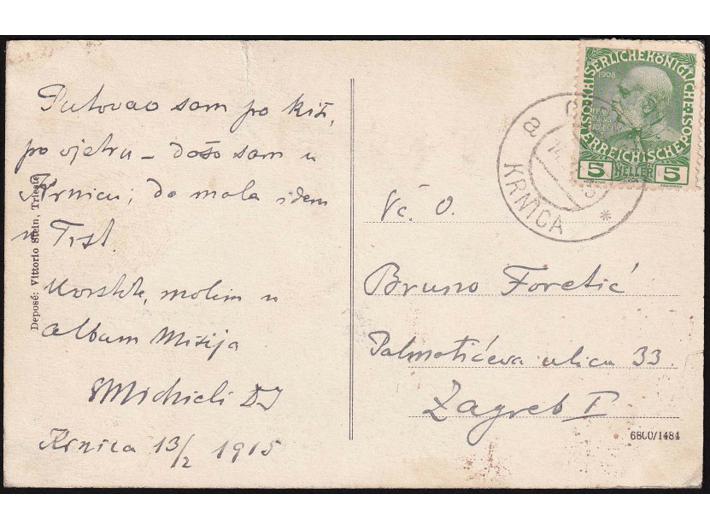 Putovao sam po kiši,
po vjetru – došo sam u
Krnicu; do mala idem
u Trst.
molim u
album Mišija
Michieli DJ
Krnica 13/2 1915
Deposé: Vittorio Stein, Trieste
KRNICA
1908
KAISERLICHE KÖNIGLICHE
ÖSTERREICHISCHE
5 HELLER 5
Vč. O.
Bruno Foretić
Palmotićeva ulica 33.
Zagreb I
6800/1484